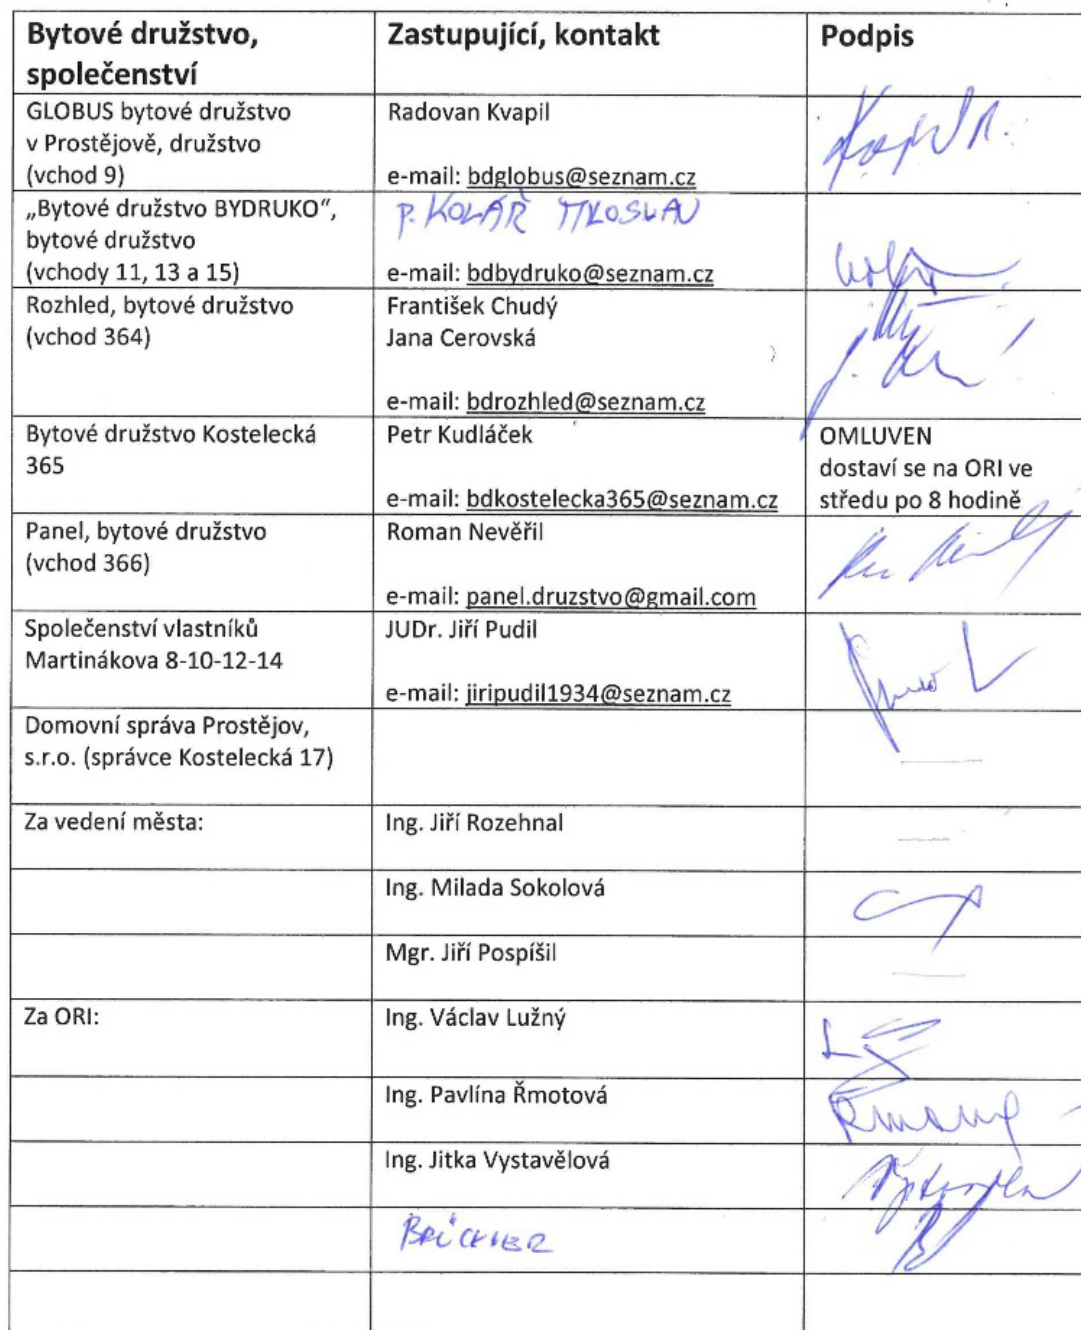 Bytové družstvo,
společenství
Zastupující, kontakt
Podpis
GLOBUS bytové družstvo
v Prostějově, družstvo
(vchod 9)
Radovan Kvapil
e-mail: bdglobus@seznam.cz
„Bytové družstvo BYDRUKO“,
bytové družstvo
(vchody 11, 13 a 15)
P. KOLAŘ MIROSLAV
e-mail: bdbydruko@seznam.cz
Rozhled, bytové družstvo
(vchod 364)
František Chudý
Jana Cerovská
e-mail: bdrozhled@seznam.cz
Bytové družstvo Kostelecká
365
Petr Kudláček
e-mail: bdkostelecka365@seznam.cz
OMLUVEN
dostaví se na ORI ve
středu po 8 hodině
Panel, bytové družstvo
(vchod 366)
Roman Nevěřil
e-mail: panel.druzstvo@gmail.com
Společenství vlastníků
Martinákova 8-10-12-14
JUDr. Jiří Pudil
e-mail: jiripudil1934@seznam.cz
Domovní správa Prostějov,
s.r.o. (správce Kostelecká 17)
Za vedení města:
Ing. Jiří Rozehnal
Ing. Milada Sokolová
Mgr. Jiří Pospíšil
Za ORI:
Ing. Václav Lužný
Ing. Pavlína Řmotová
Ing. Jitka Vystavělová
BRÜCKNER